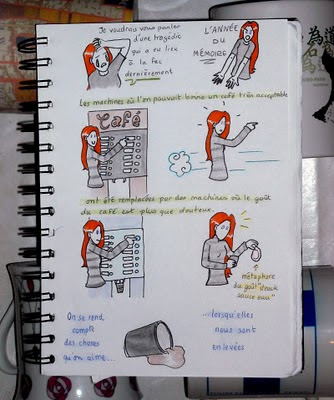 Je voudrais vous parler
d'une tragédie
qui a eu lieu
à la fac
dernièrement
L'ANNÉE
DU
MÉMOIRE
Les machines où l'on pouvait boire un café très acceptable
Café
ont été remplacées par des machines où le goût
du café est plus que douteux
métaphore
du goût "crack
On se rend
compte
des choses
qu'on aime...
...lorsqu'elles
nous sont
enlevées
為道